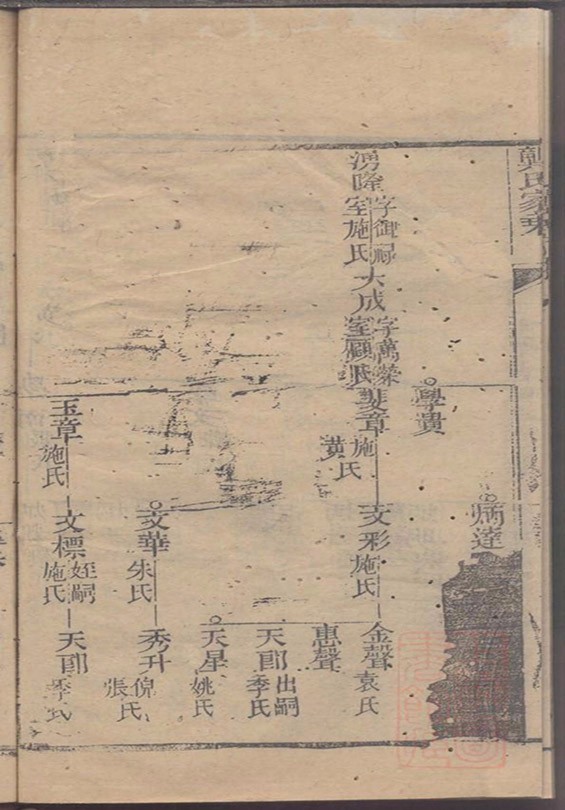 龔氏家乘
學貴
炳達
湧隆
字御
室施氏
大成
字萬榮
室顧氏
斐章
施氏
黃
文彩
施氏
金聲
袁氏
惠聲
天郎
出嗣
季氏
天星
姚氏
文華
朱氏
秀升
倪氏
張
玉章
施氏
文標
姪嗣
施氏
天郎
季氏